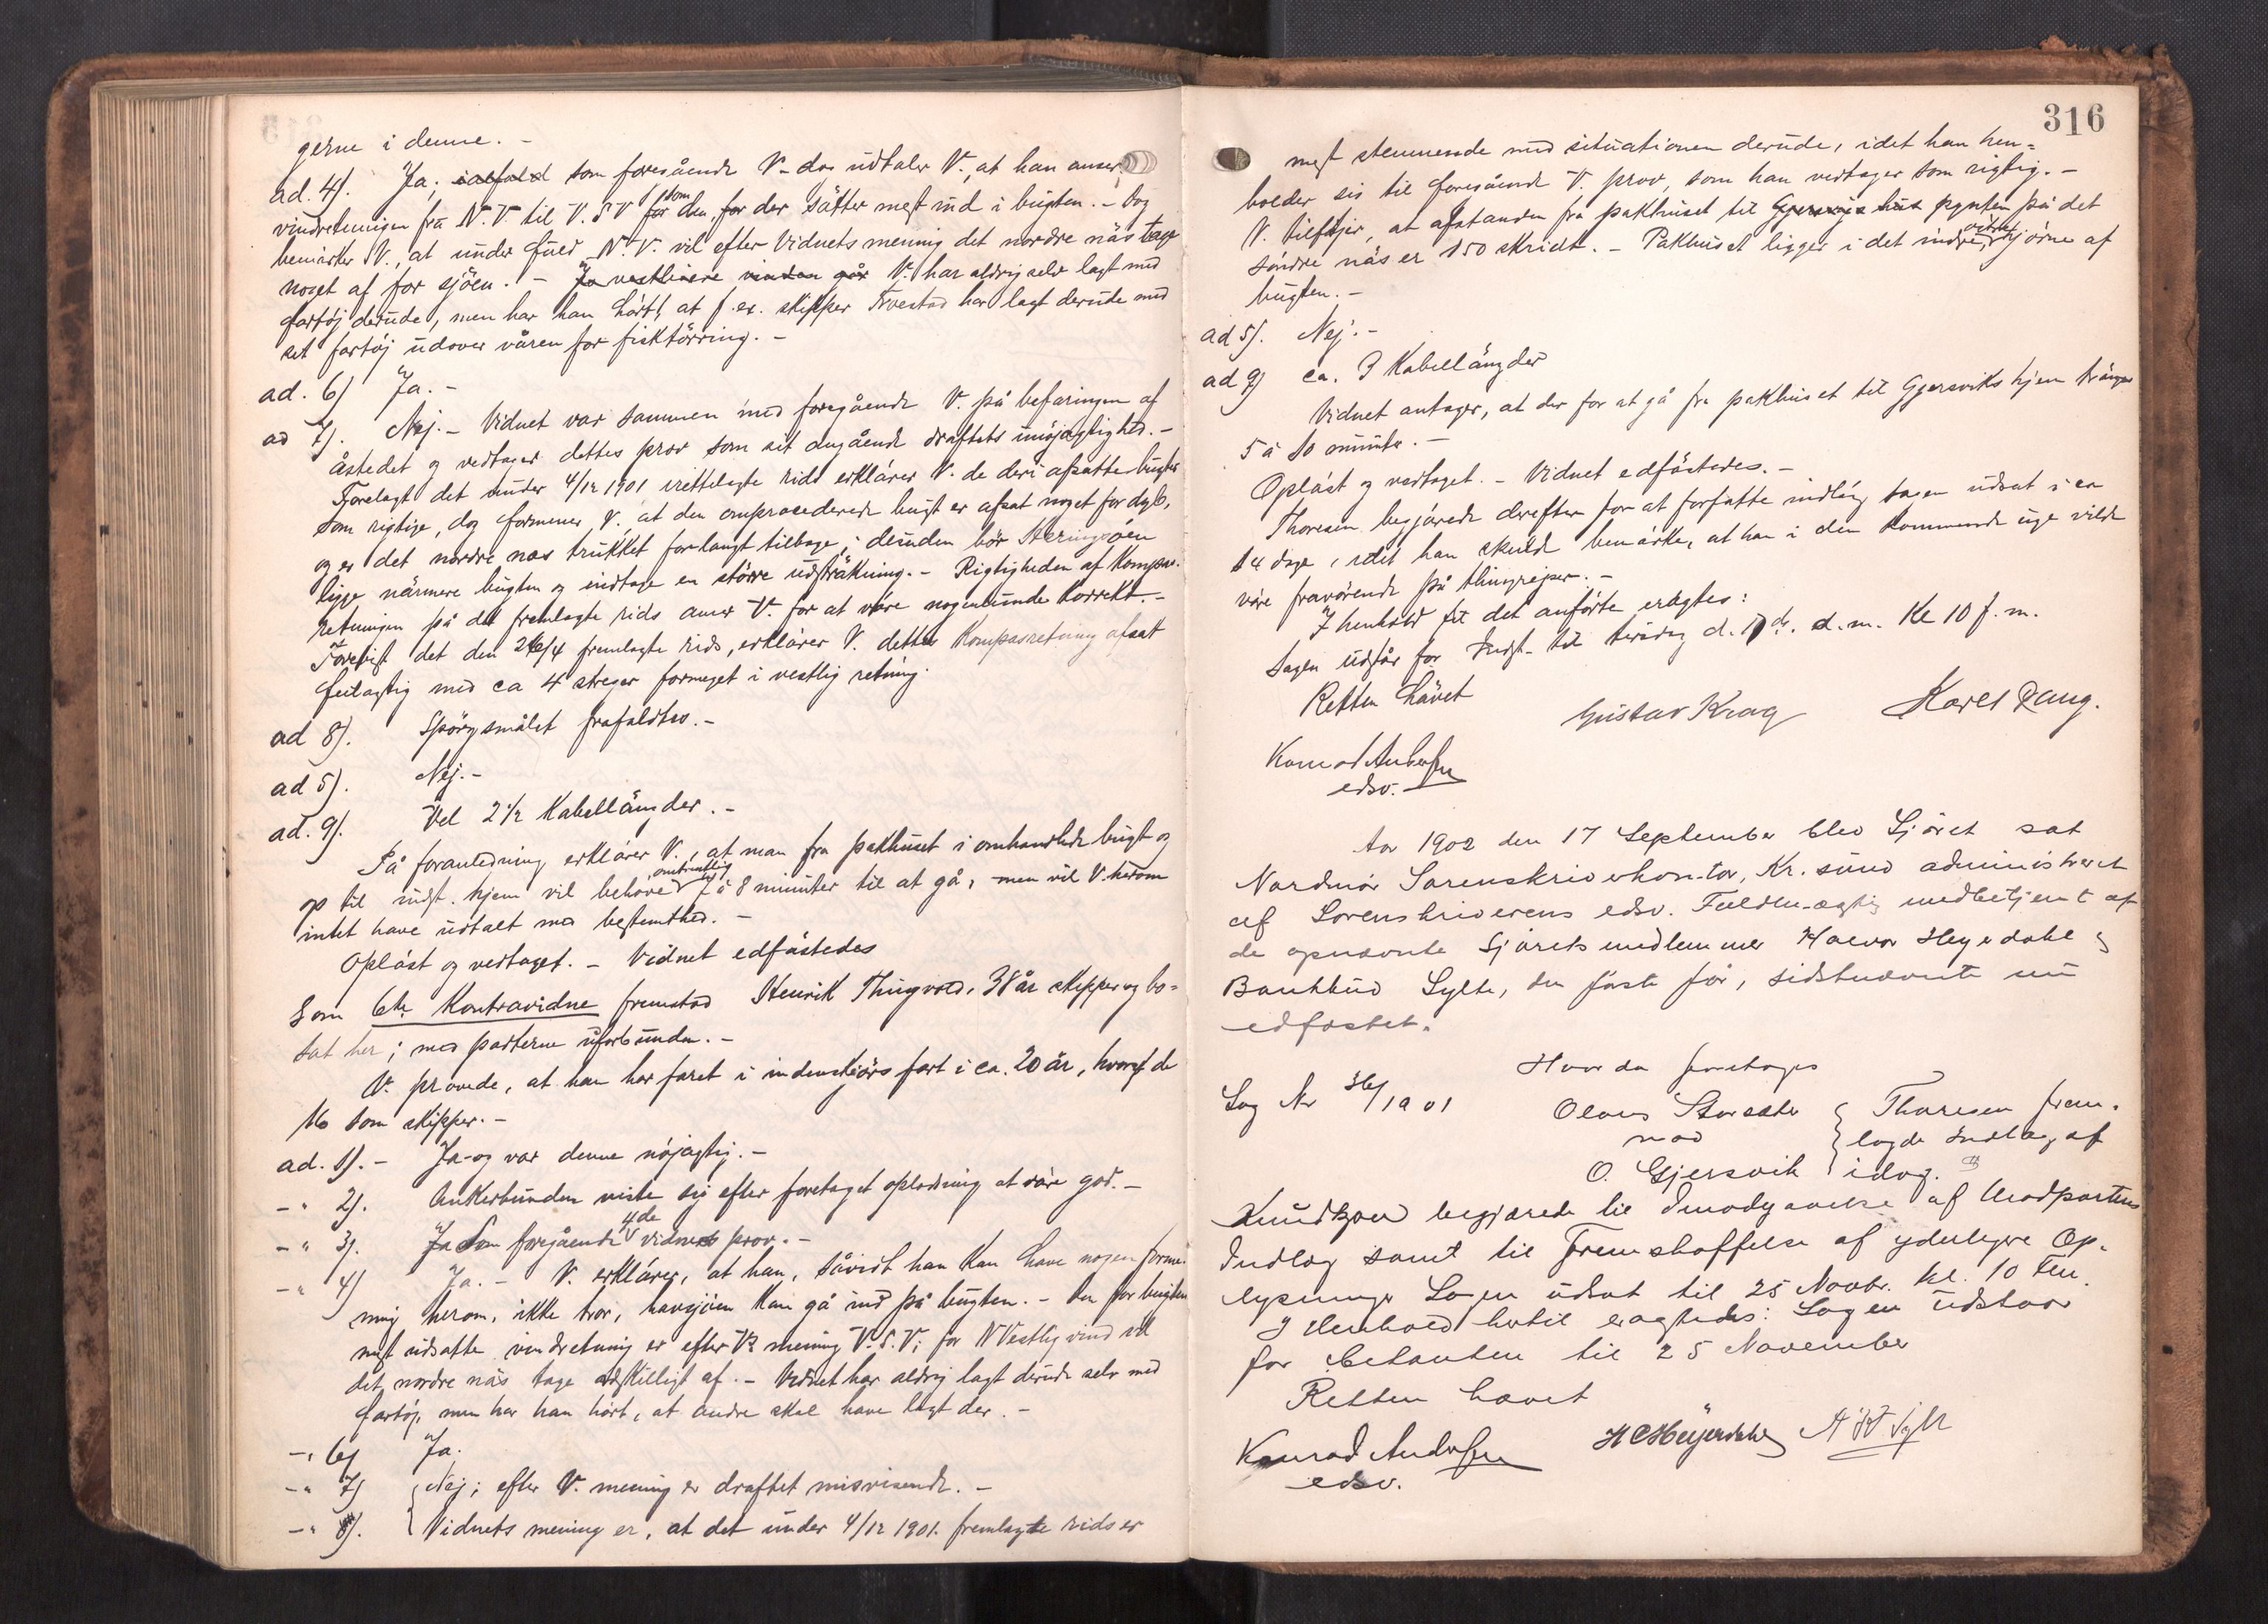 gerne i denne. -
ad. 4). Ja; ialfald som foregående V - dog udtaler V., at han anser
vindretningen fra N. V. til V. S V som den, for der sätter mest ind i bugten. - Dog
bemärker V., at under fuld N. V. vil efter Vidnets mening det nordre näs tage
noget af for sjöen. - Jo vestligere vinden går V. har aldrig selv lagt med
fartöj derude, men har han hört, at f. ex. skipper Tvestad har lagt derude med
sit fartöj udover våren for fisktörring. -
ad. 6) Ja. -
ad 7). Nej. - Vidnet var sammen med foregående V. på befaringen af
åstedet og vedtager dettes prov som sit angående draftets unöjagtighed. -
Forelagt det under 4/12 1901 irettelagte rids erklärer V. de deri afsatte bugter
som rigtige, dog formener V. at den omprocederede bugt er afsat noget for dyb,
og er det nordre näs trukket for langt tilbage; desuden bör Äringsöen
ligge närmere bugten og indtage en större udsträkning. - Rigtigheden af Kompas-
retningen på det fremlagte rids anser V. for at väre nogenlunde korrekt. -
Forevist det den 26/4 fremlagte rids, erklärer V. dettes Kompasretning afsatt
feilagtig med ca 4 streger formeget i vestlig retning.
ad 8). Spörgsmålet frafaldtes. -
ad 5). Nej. -
ad. 9). Vel 2 1/2 Kabellängder. -
På foranledning erklärer V., at man fra pakhuset i omhandlede bugt og
op til indst. hjem vil behöve omtrentlig 7 à 8 minuter til at gå, - men vil V. herom
intet have udtalt med bestemthed. -
Opläst og vedtaget. - Vidnet edfästedes
Som 6te Kontravidne fremstod Henrik Thingvold, 38 år skipper og bo-
sat her; med parterne uforbunden. -
V. provede, at han har faret i indenskjärs fart i ca. 20 år, hvoraf de
16 som skipper. -
ad. 1). - Ja - og var denne nöjagtig. -
- " 2). Ankerbunden viste sig efter foretaget oplodning at väre god. -
- " 3). Ja Som foregående 4de vidnes prov. -
- " 4) Ja. - V. erklärer, at han, såvidt han kan have nogen forme-
ning herom, ikke tror, havsjöen kan gå ind på bugten. - Den for bugten
mest udsatte vindretning er efter Vs mening V. S. V; for N Vestlig vind vil
det nordre näs tage adskilligt af. - Vidnet har aldrig lagt derude selv med
fartöj, men har han hört, at andre skal have lagt der. -
- " 6) Ja.
- " 7) Nej; efter V. mening er draftet misvisende. -
- " 8). Vidnets mening er, at det under 4/12 1901 fremlagte rids er
316
mest stemmende med situationen derude, idet han hen-
holder sig til foregående V. prov, som han vedtager som rigtig. -
V. tilföjer, at afstanden fra pakhuset til Gjersviks hus pynten på det
söndre näs er 150 skridt. - Pakhuset ligger i det indre hjörne af
bugten. -
ad 5). Nej. -
ad 9) ca. 3 Kabellängder
Vidnet antager, at der for at gå fra pakhuset til Gjersviks hjem tränges
5 à 10 minuter. -
Opläst og vedtaget. - Vidnet edfästedes. -
Thoresen begjärede derefter for at forfatte indläg sagen udsat i ca
14 dage, idet han skulde bemärke, at han i den kommende uge vilde
väre fravärende på thingrejser. -
I henhold til det anförte eragtes:
Sagen udstår for Indst. til tirsdag d. 17 ds. d. m. Kl 10 f. m.
Retten hävet
Gustav Krag Karel Raug.
Konrad Andersen
edsv.
Aar 1902 den 17 September blev Sjöret sat
Nordmör Sorenskriverkontor, Kr. sund administreret
af Sorenskriverens edsv. Fuldmægtig medbetjent af
de opnævnte Sjörets medlemmer Halvor Heyerdahl og
Bankbud Sylte, den förste för, sidstnævnte nu
edfæstet.
Hvor da foretoges
Sag Nr 36/1901 Olaus Storsæter
mod
O. Gjersvik
Thoresen frem-
lagde Indlæg af
idag.
Knudtzon begjærede til Imødegaaelse af Modpartens
Indlæg samt til Fremskaffelse af yderligere Op-
lysninger Sagen udsat til 25 Novbr. kl. 10 Fm.
I Henhold hertil eragtedes: Sagen udstaar
for Citanten til 25 November
Retten hævet
Konrad Andersen
edsv.
H C Heyerdahl A Sylte